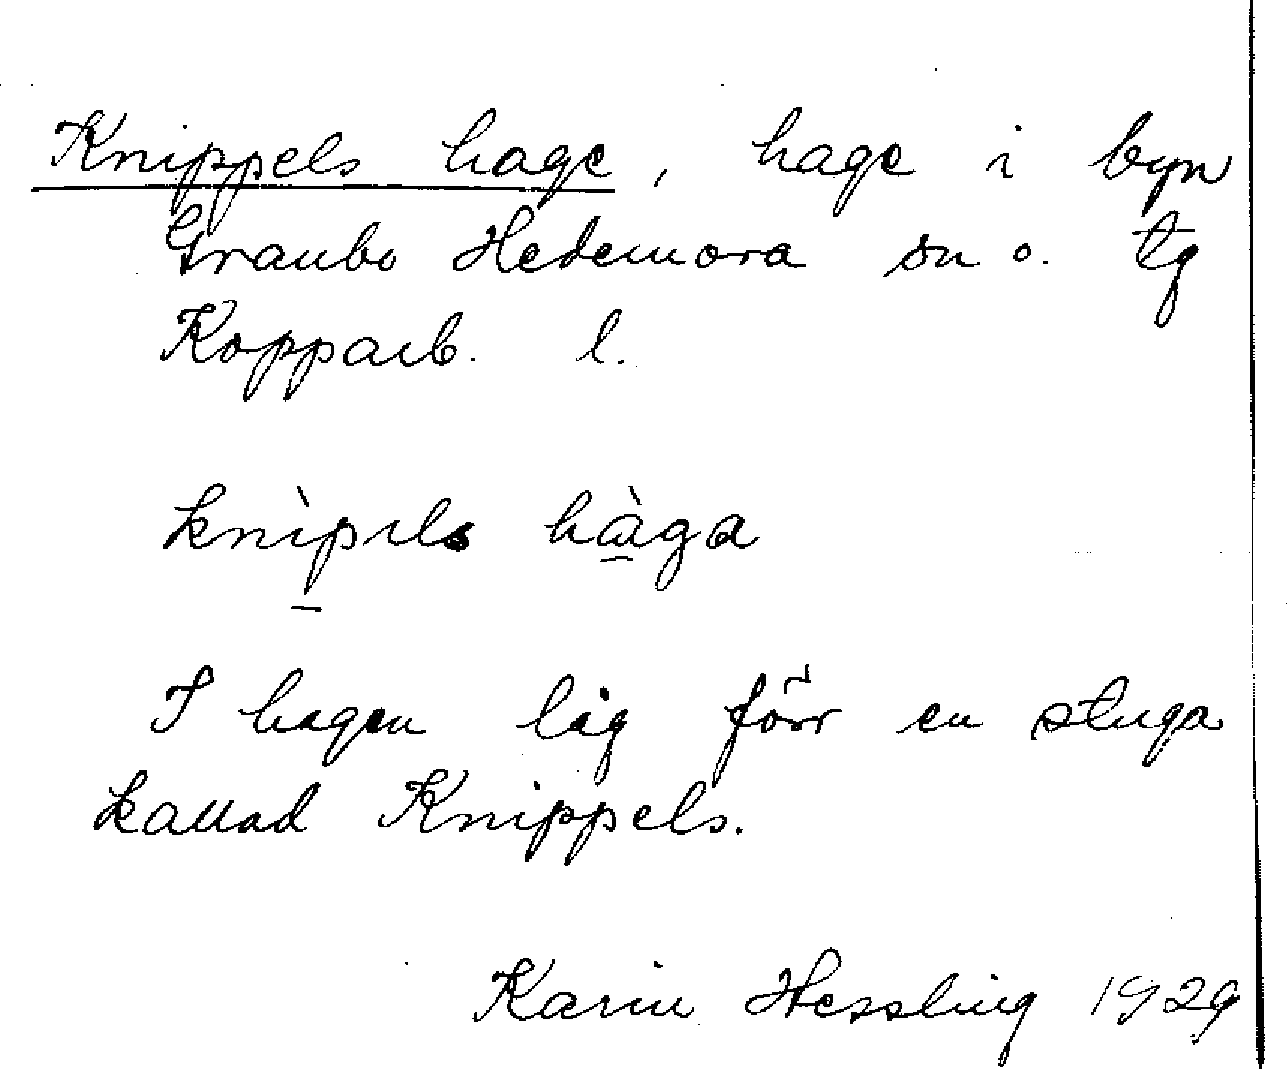 Knippels hage, hage i byn
Graubo Hedemora sn o. tg
Kopparb. l.
knìpıls hàga
I hagen låg förr en stuga
kallad Knippels.
Karin Hessling 1929